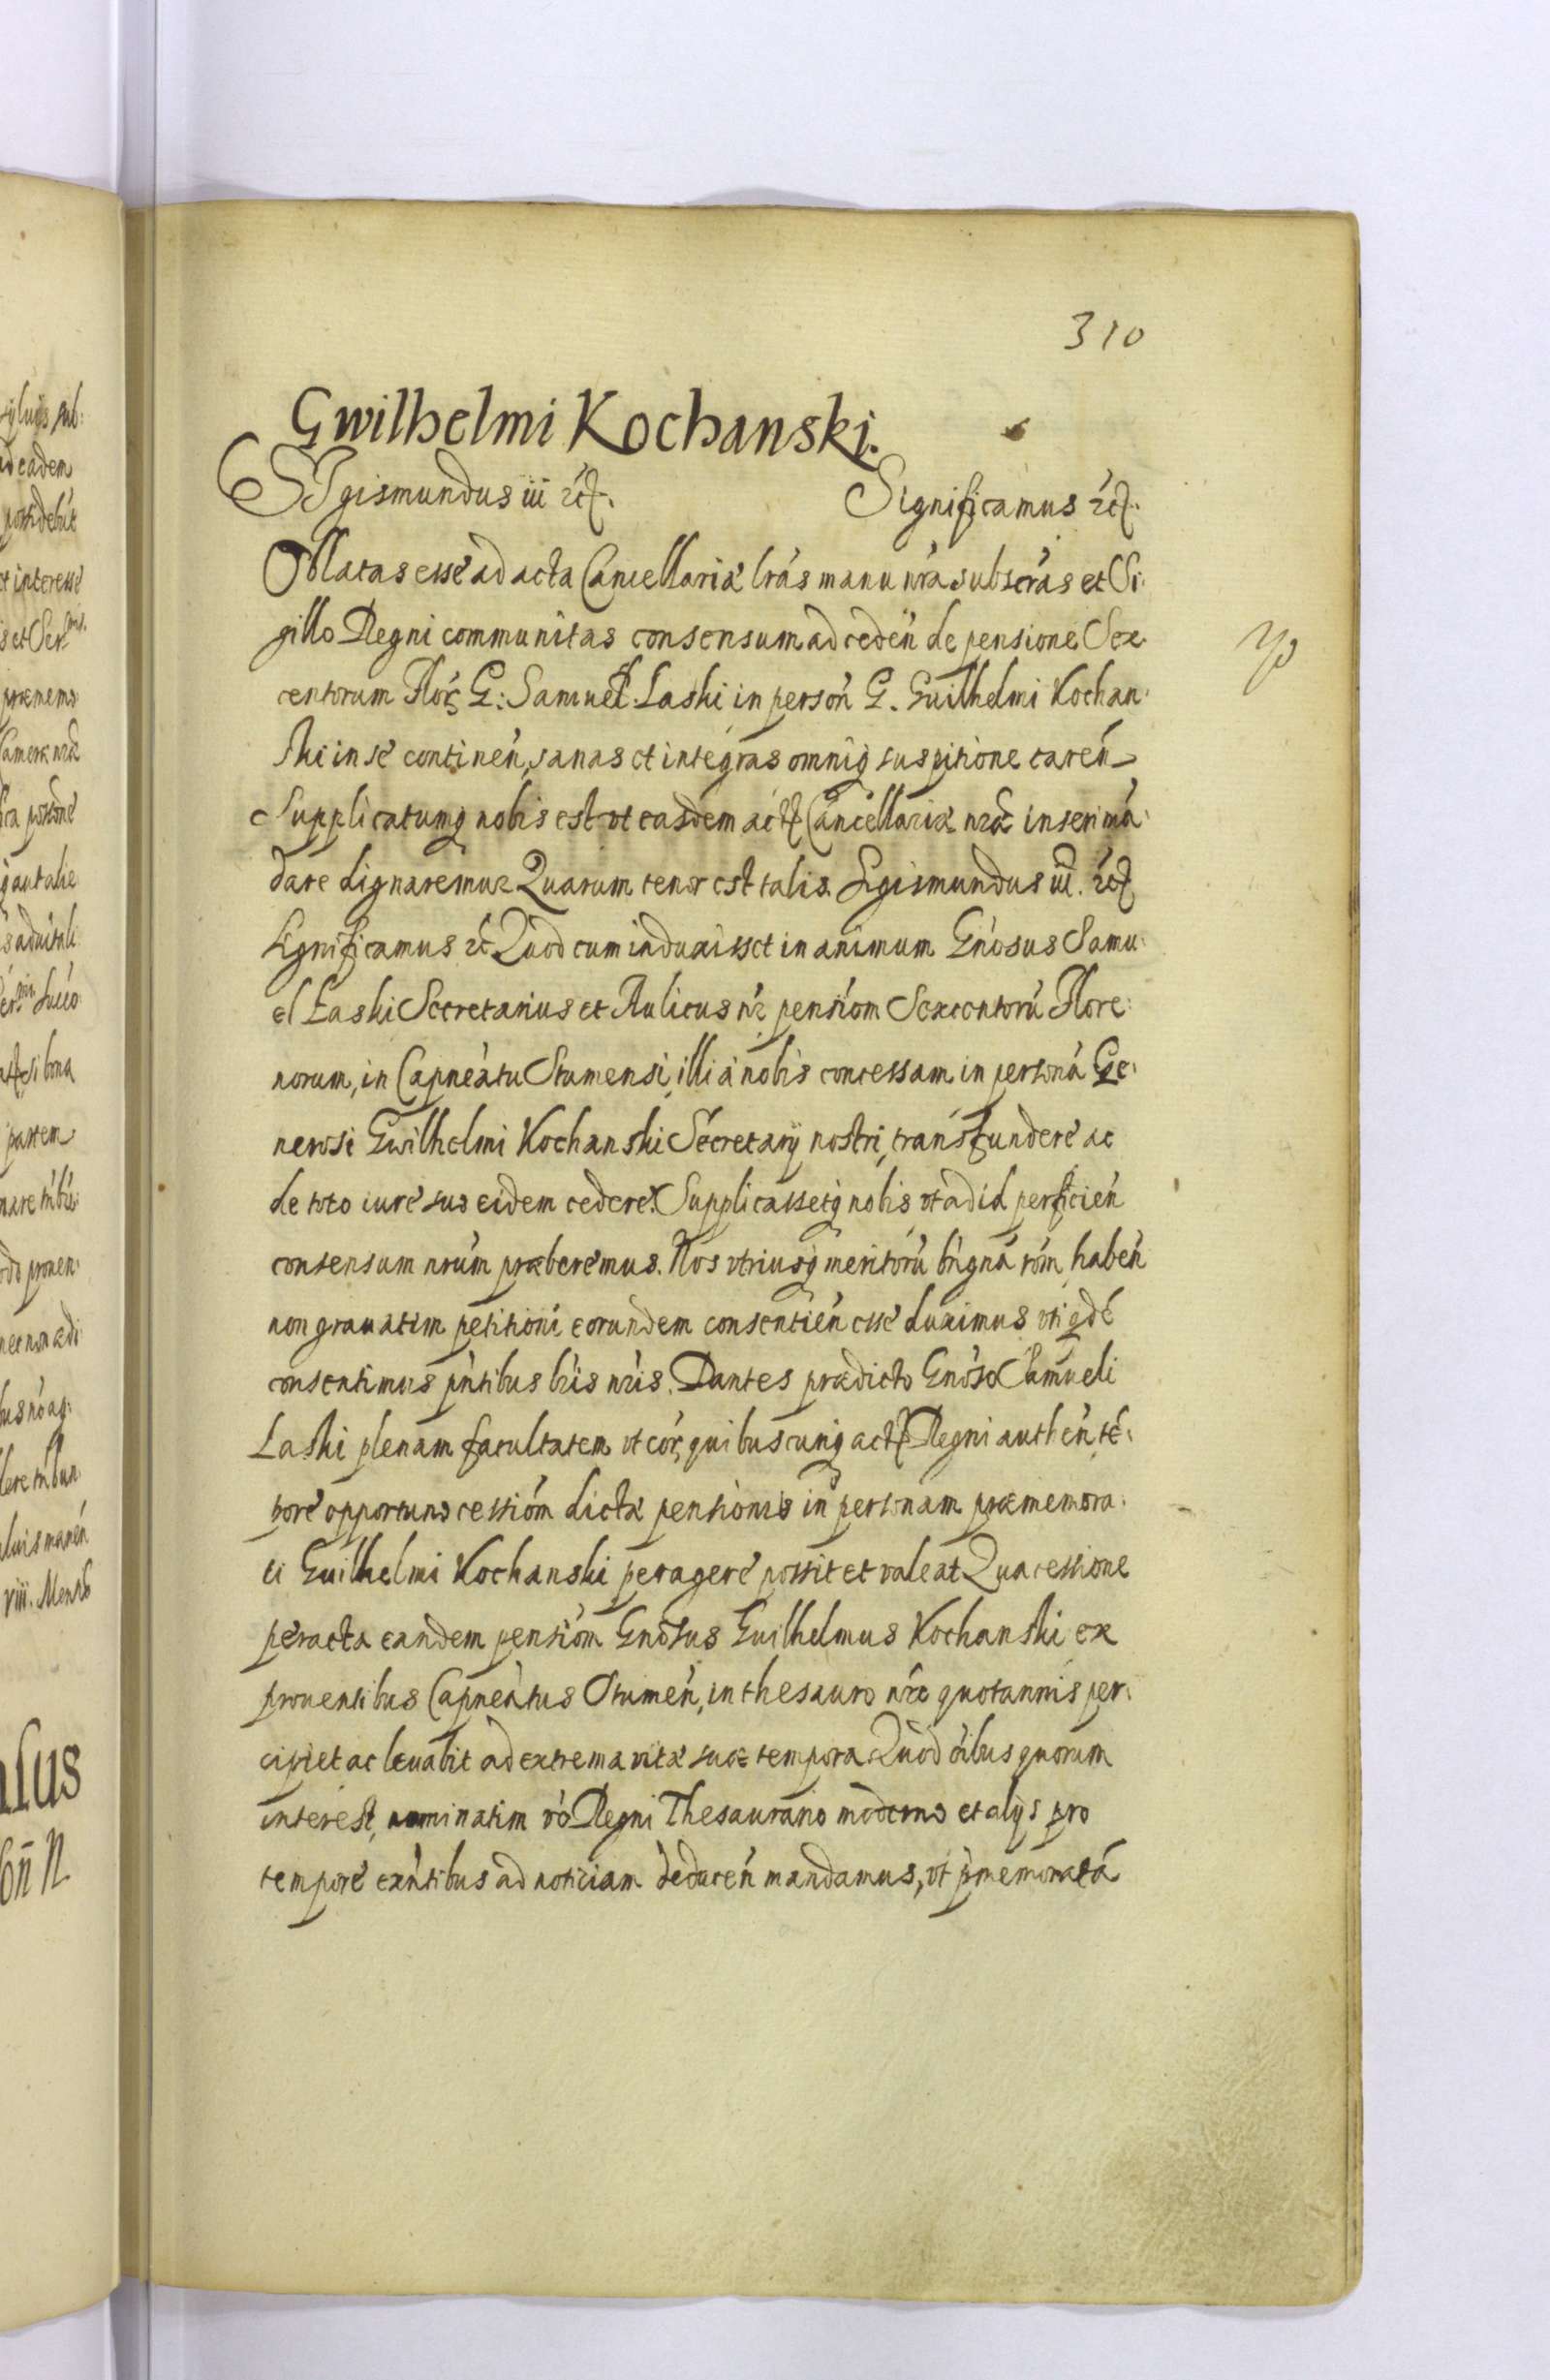 310
Gwilhelmi Kochanski.
SIgismundus iii etc. Significamus etc.
Oblatas esse ad acta Cancellariæ lr̃as manu nr̃a subscr̃as et Si:
gillo Regni communitas consensum ad cedeń de pensione Sex
centorum Flor̃ G: Samuel Laski in persoń G. Guilhelmi Kochan:
ski in se contineń, sanas et integras omniq̃ suspitione careń
Supplicatumq̃ nobis est ut easdem actis Cancellariæ nr̃æ inseri mã
dare dignaremur Quarum tenor est talis. Sigismundus iii. etc
Significamus etc Quod cum induxisset in animum Gñosus Samu:
el Laski Secretarius et Aulicus nr̃ pensiõm Sexcentorũ Flore:
norum, in Capneatu Stumensi, illi à nobis concessam in personã Ge:
nerosi Gwilhelmi Kochanski Secretarij nostri, transfundere ac
de toto iure suo eidem cedere. Supplicassetq̃ nobis ut ad id perficień
consensum nr̃um præberemus. Nos utriusq̃ meritorũ b̃ngnã rõm habeń
non grauatim petitioni eorundem consentień esse duximus uti qdẽ
consentimus pñtibus lr̃is nr̃is. Dantes prædicto Gnõso Samueli
Laski plenam facultatem ut cor̃ quibuscunq̃ actis Regni authen, tẽ:
pore opportuno cessiõm dictæ pensionis in personam præmemora:
ti Guilhelmi Kochanski peragere possit et valeat Qua cessione
peracta eandem pensiõm Gnõsus Guilhelmus Kochanski ex
prouentibus Capneatus Stumeń, in thesauro nr̃o quotannis per:
cipiet ac leuabit ad extrema vitæ suæ tempora. Quod oĩbus quorum
interest, nominatim vo Regni Thesaurario moderno et alijs pro
tempore exñtibus ad noticiam deduceń mandamus, ut pr̃memoratã